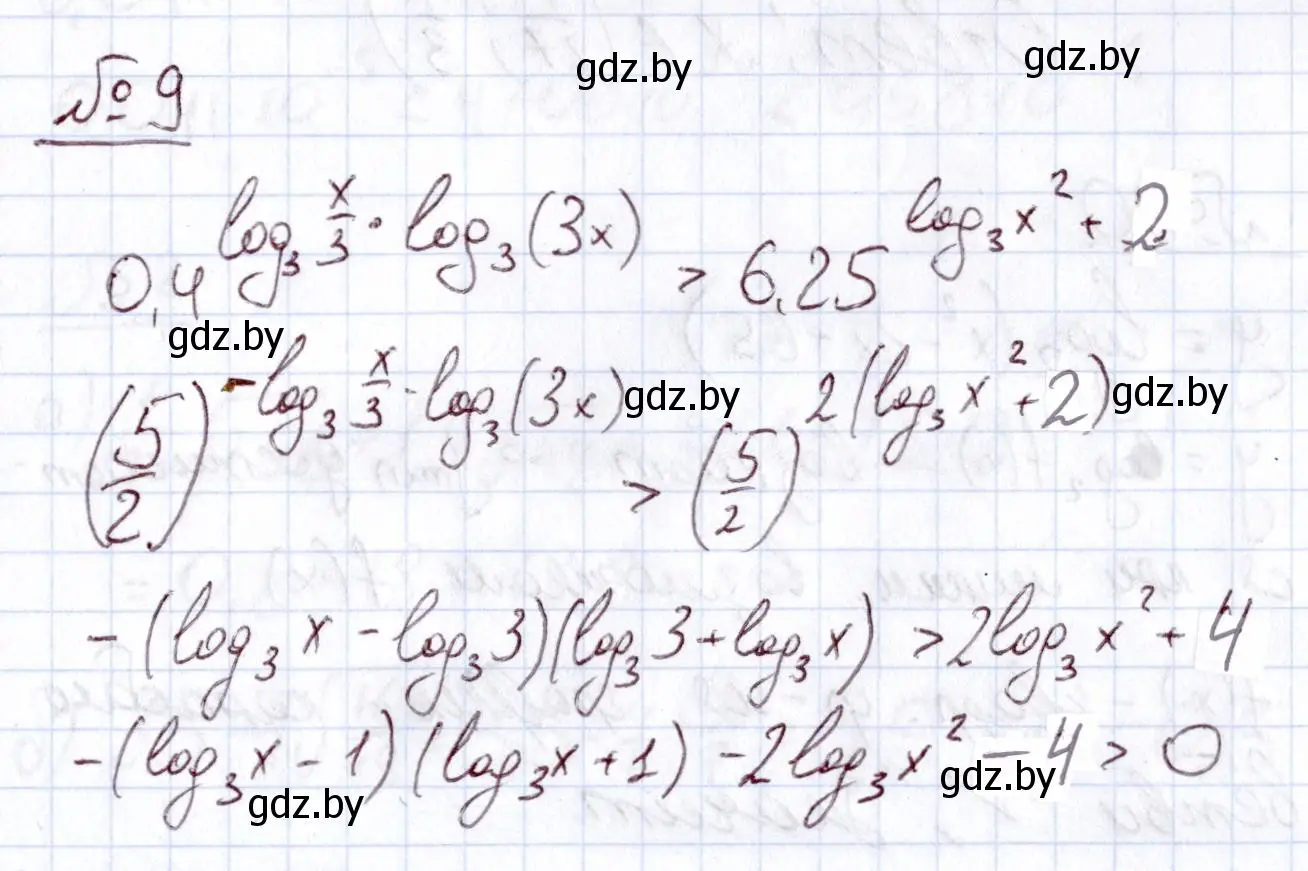 gdz.by gdz.by
№ 9
0,4^{log₃ \frac{x}{3} · log₃(3x)} > 6,25^{log₃x² + 2}
gdz.by
(\frac{5}{2})^{-log₃ \frac{x}{3} · log₃(3x)} > (\frac{5}{2})^{2(log₃x² + 2)}
gdz.by gdz.by
-(log₃x - log₃3)(log₃3 + log₃x) > 2log₃x² + 4
-(log₃x - 1)(log₃x + 1) - 2log₃x² - 4 > 0
gdz.by gdz.by